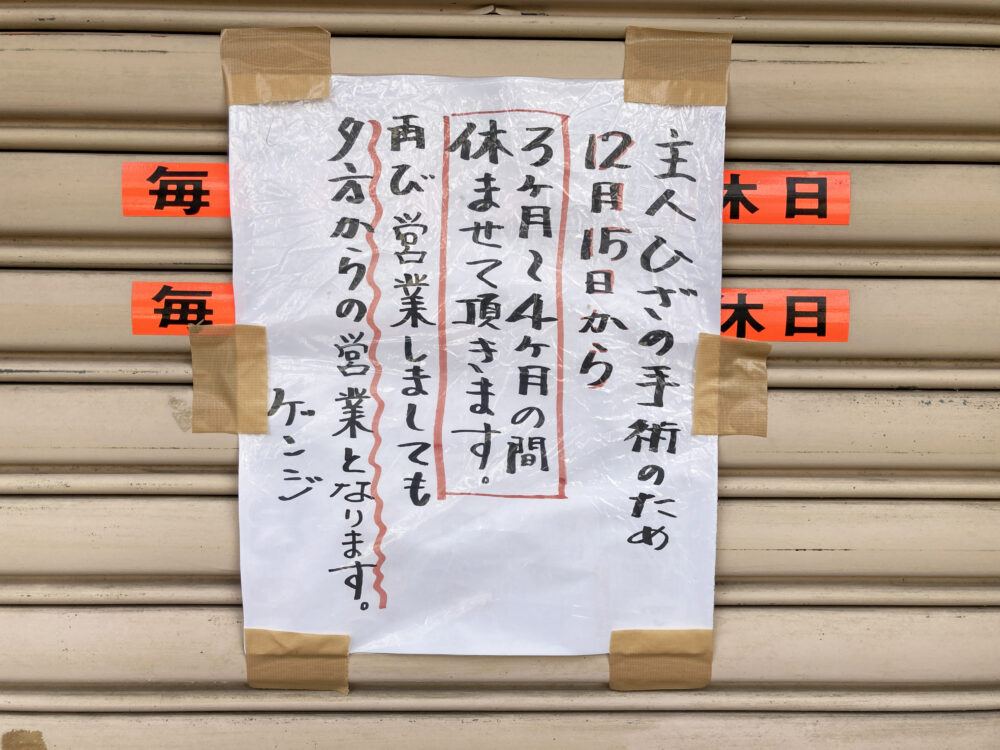 主人ひざの手術のため
12月15日から
3ヶ月~4ヶ月の間
休ませて頂きます。
再び営業しましても
夕方からの営業となります。
ゲンジ
毎
休日
毎
休日